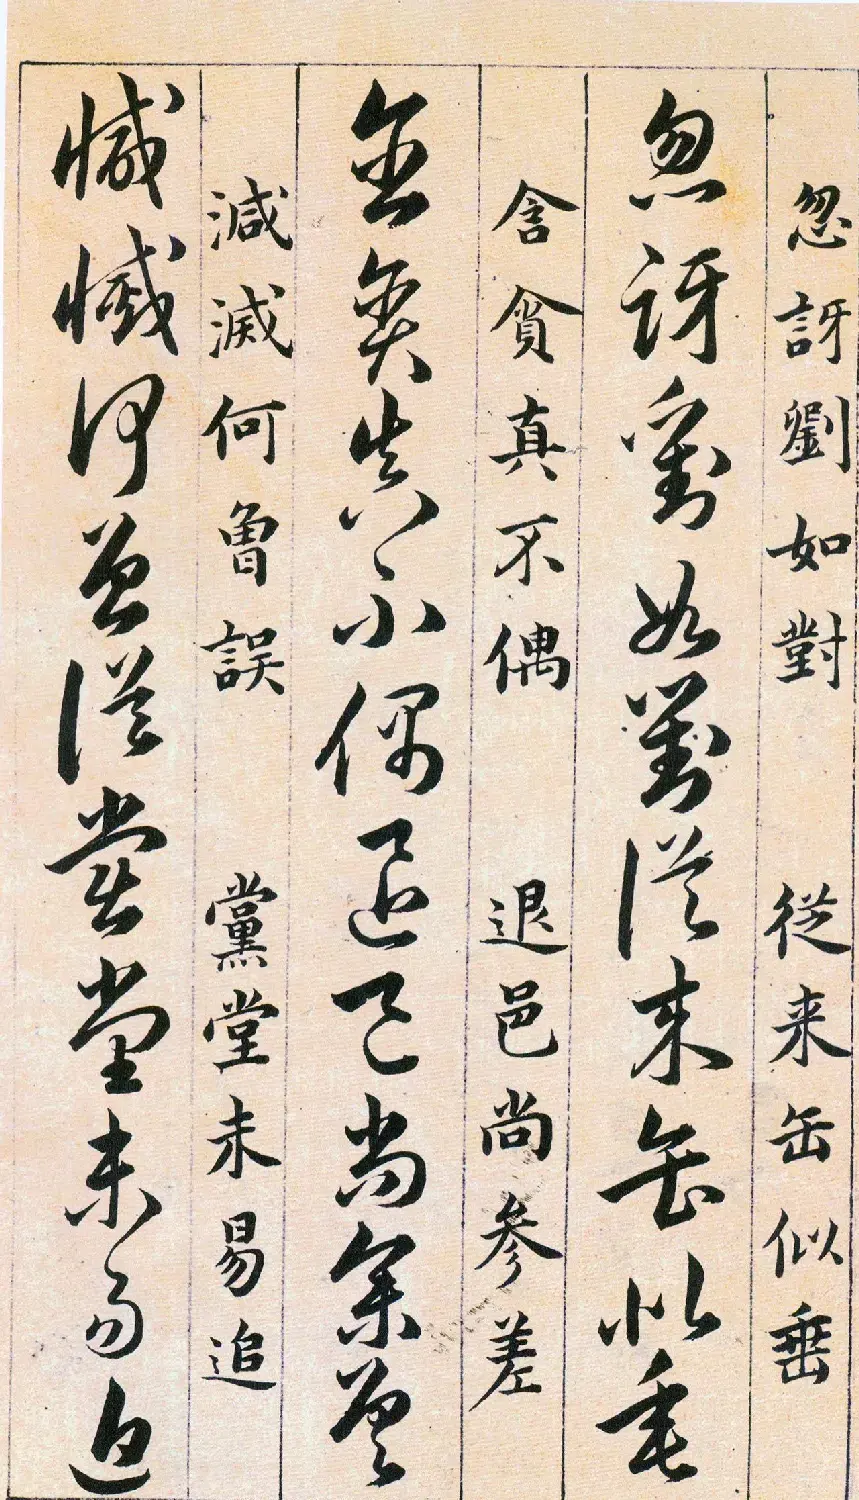 忽訝劉如對 從来缶似垂
忽訝劉如對從来缶似垂
含貪真不偶 退邑尚参差
含貪真不偶退邑尚参差
減滅何曾誤 黨堂未易追
減滅何曾誤黨堂未易追